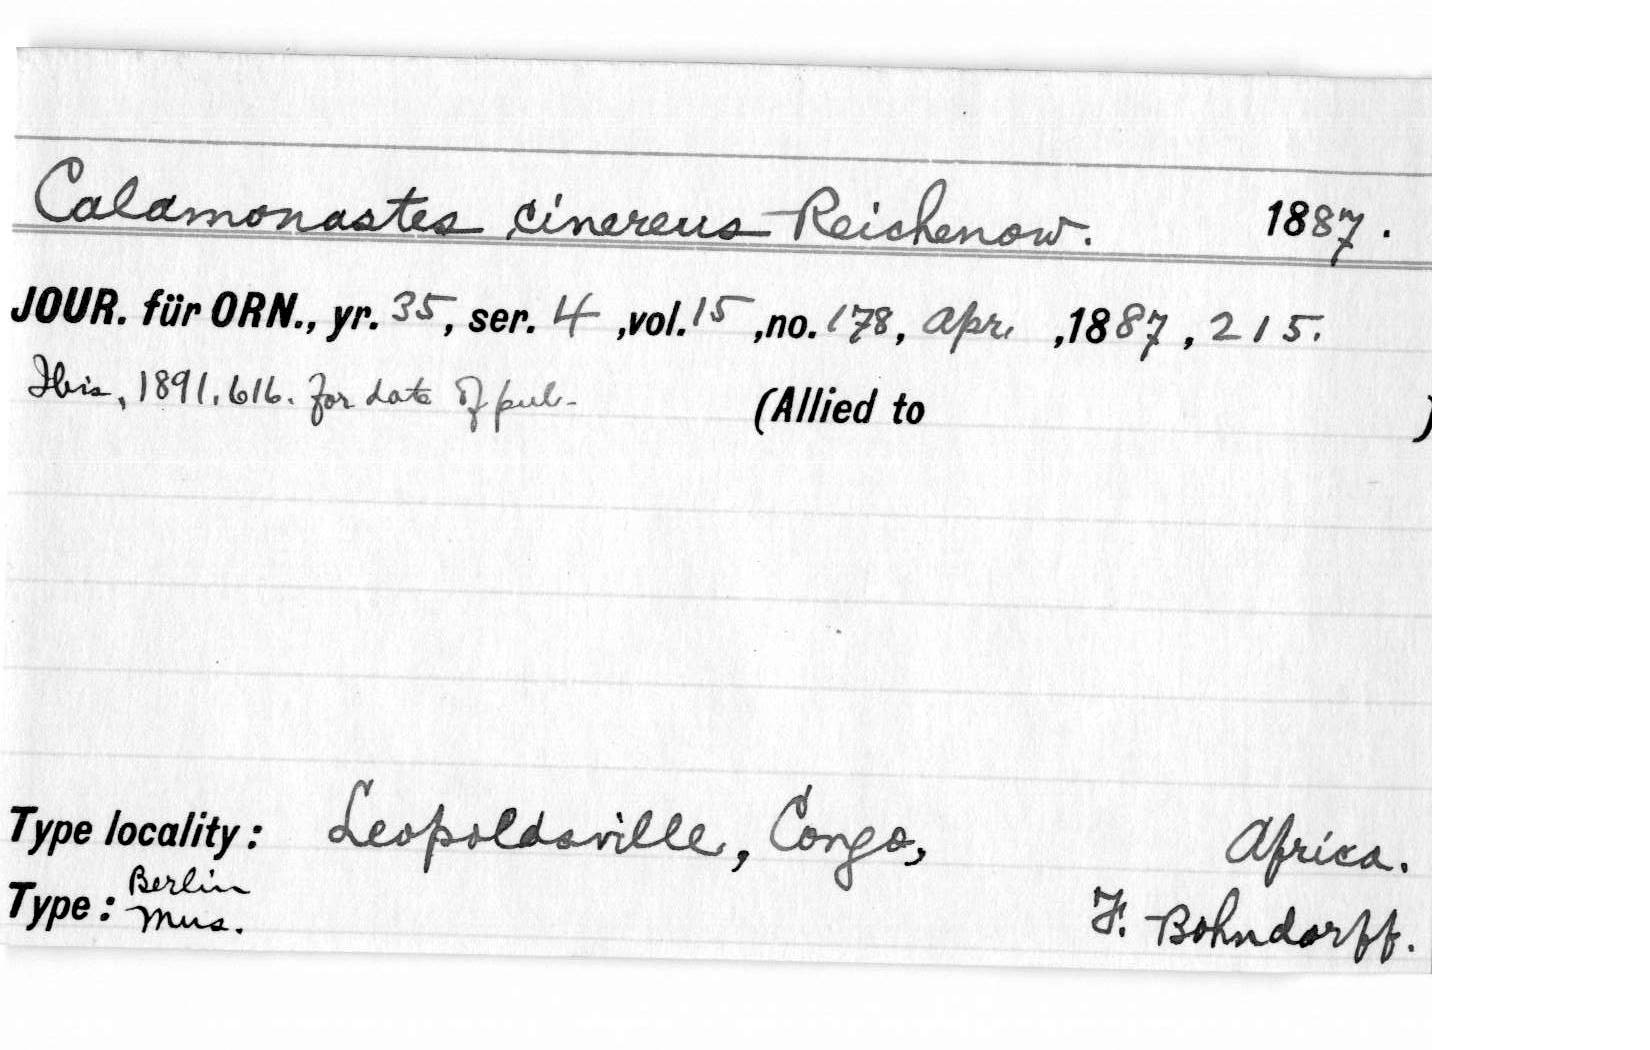 Calamonastes cinereus Reichenow. 1887.
JOUR. für ORN., yr. 35, ser. 4 ,vol. 15 ,no. 178, Apr. ,1887, 215.
Ibis, 1891, 616. for date of pub.
(Allied to )
Type locality: Leopoldsville, Congo, Africa.
Type: Berlin Mus. F. Bohndorff.